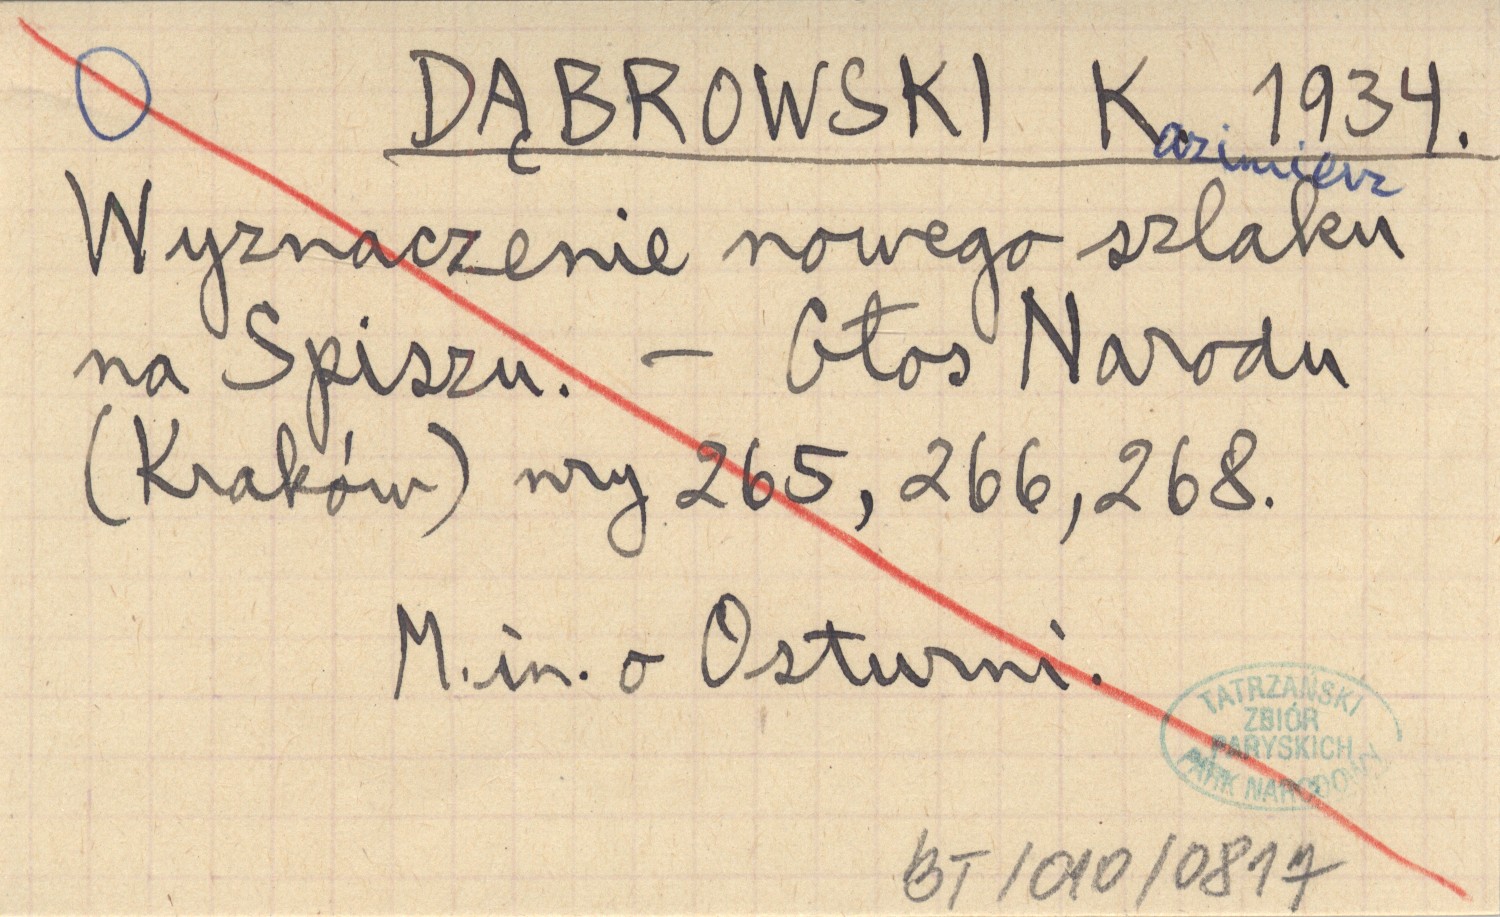 DĄBROWSKI Kazimierz 1934.
Wyznaczenie nowego szlaku
na Spiszu. – Głos Narodu
(Kraków) nry 265, 266, 268.
M.in. o Osturni.
TATRZAŃSKI
ZBIÓR
PARYSKICH
PARK NARODOWY
BT/010/0817